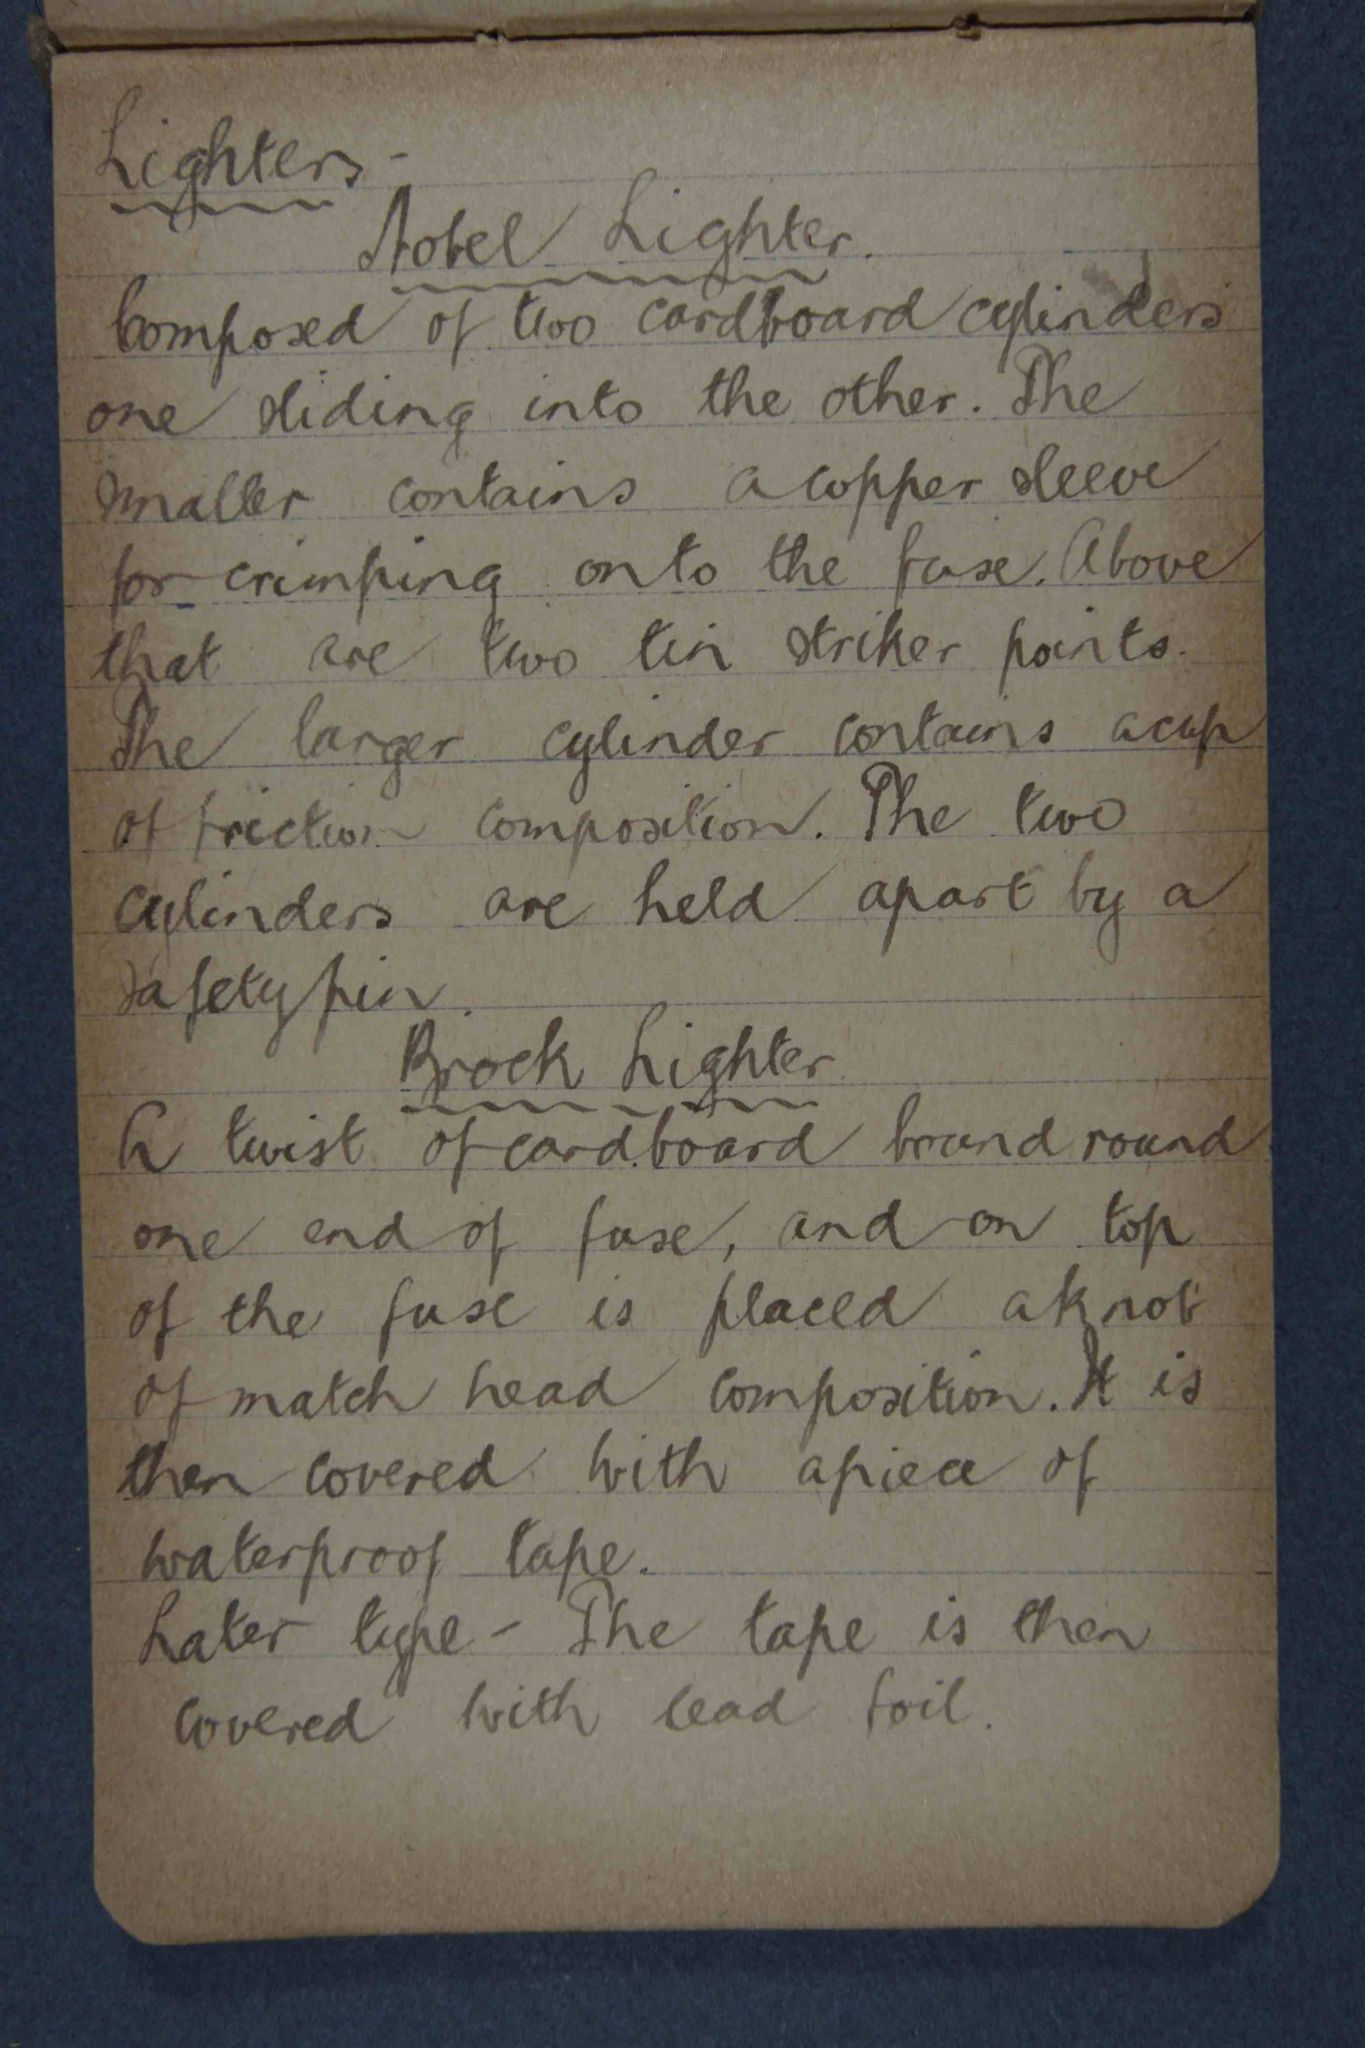 Lighters -
Nobel Lighter.
Composed of two cardboard cylinders
one sliding into the other. The
smaller contains a copper sleeve
for crimping onto the fuse. Above
that are two tin striker points.
The larger cylinder contains a cup
of friction composition. The two
cylinders are held apart by a
safety pin.
Brock Lighter
A twist of cardboard bound round
one end of fuse, and on top
of the fuse is placed a knot
of match head composition. It is
then covered with a piece of
waterproof tape.
Later type - The tape is then
covered with lead foil.